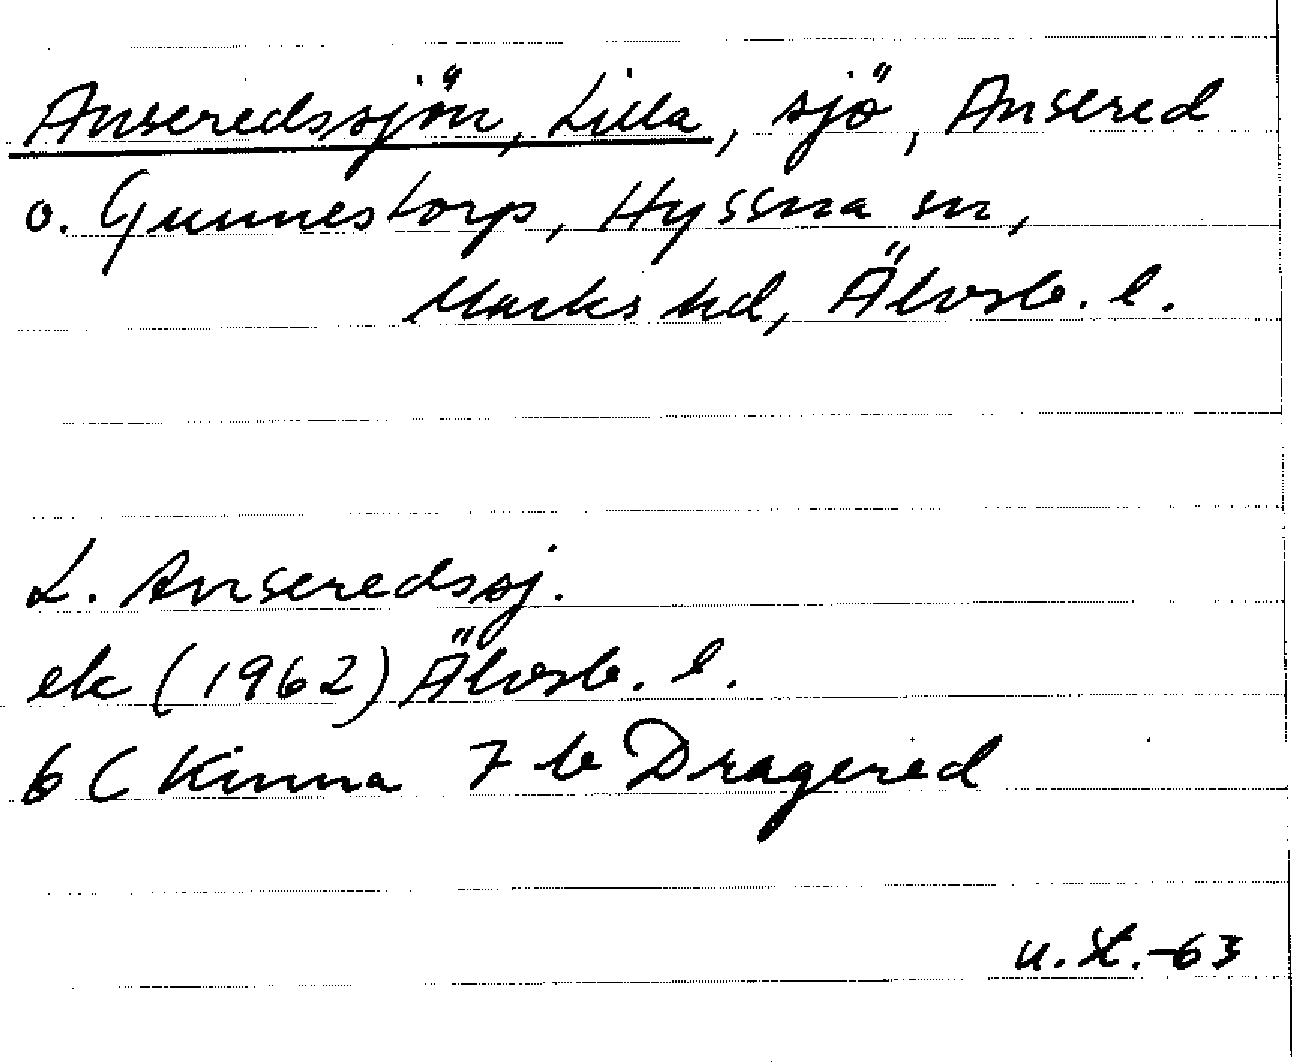 Anseredssjön, Lilla, sjö, Ansered
o. Gunnestorp, Hyssna sn,
Marks hd, Älvsb. l.
L. Anseredssj.
ek (1962) Älvsb. l.
6 C Kinna 7 b Dragered
u. st. -63